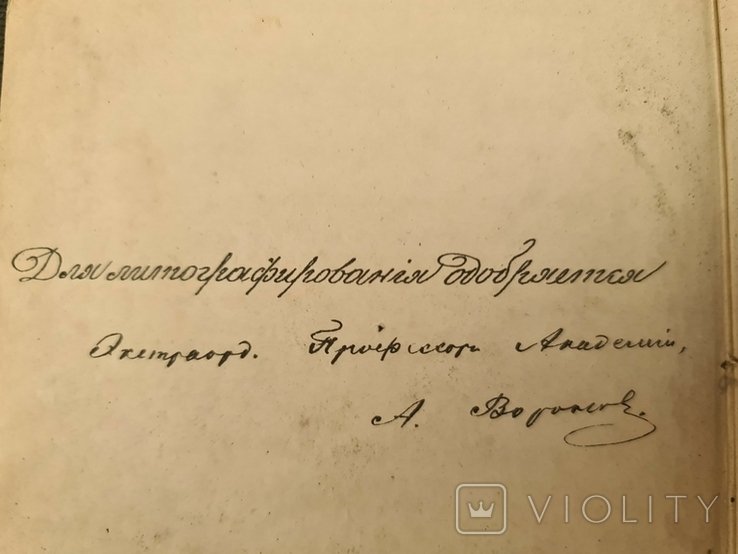 Для литографированія одобряется
Экстраорд. Профессоръ Академіи,
А. Воронов.
VIOLITY